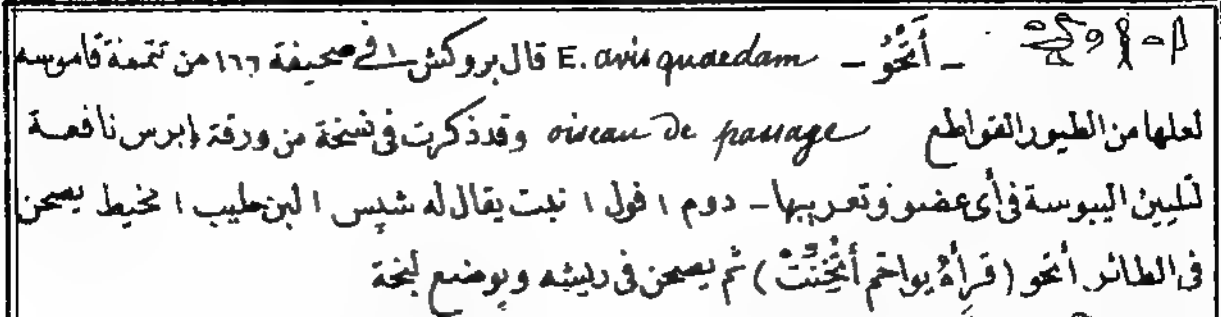 ـ أَتْخُو ـ E. avis quaedam قال بروكش فى صحيفة ١٦٦ من تتمة قاموسه
لعلها من الطيور القواطع oiseau de passage وقد ذكرت فى نسخة من ورقة إبرس نافعة
لتليين اليبوسة فى أى عضو وتعريبها ـ دوم ١ فول ١ نبت يقال له شپس ١ لبن حليب ١ مخيط يصحن
فى الطائر أتخو (قرأه يواخم) ثم يصحن فى ريشه ويوضع لبخة